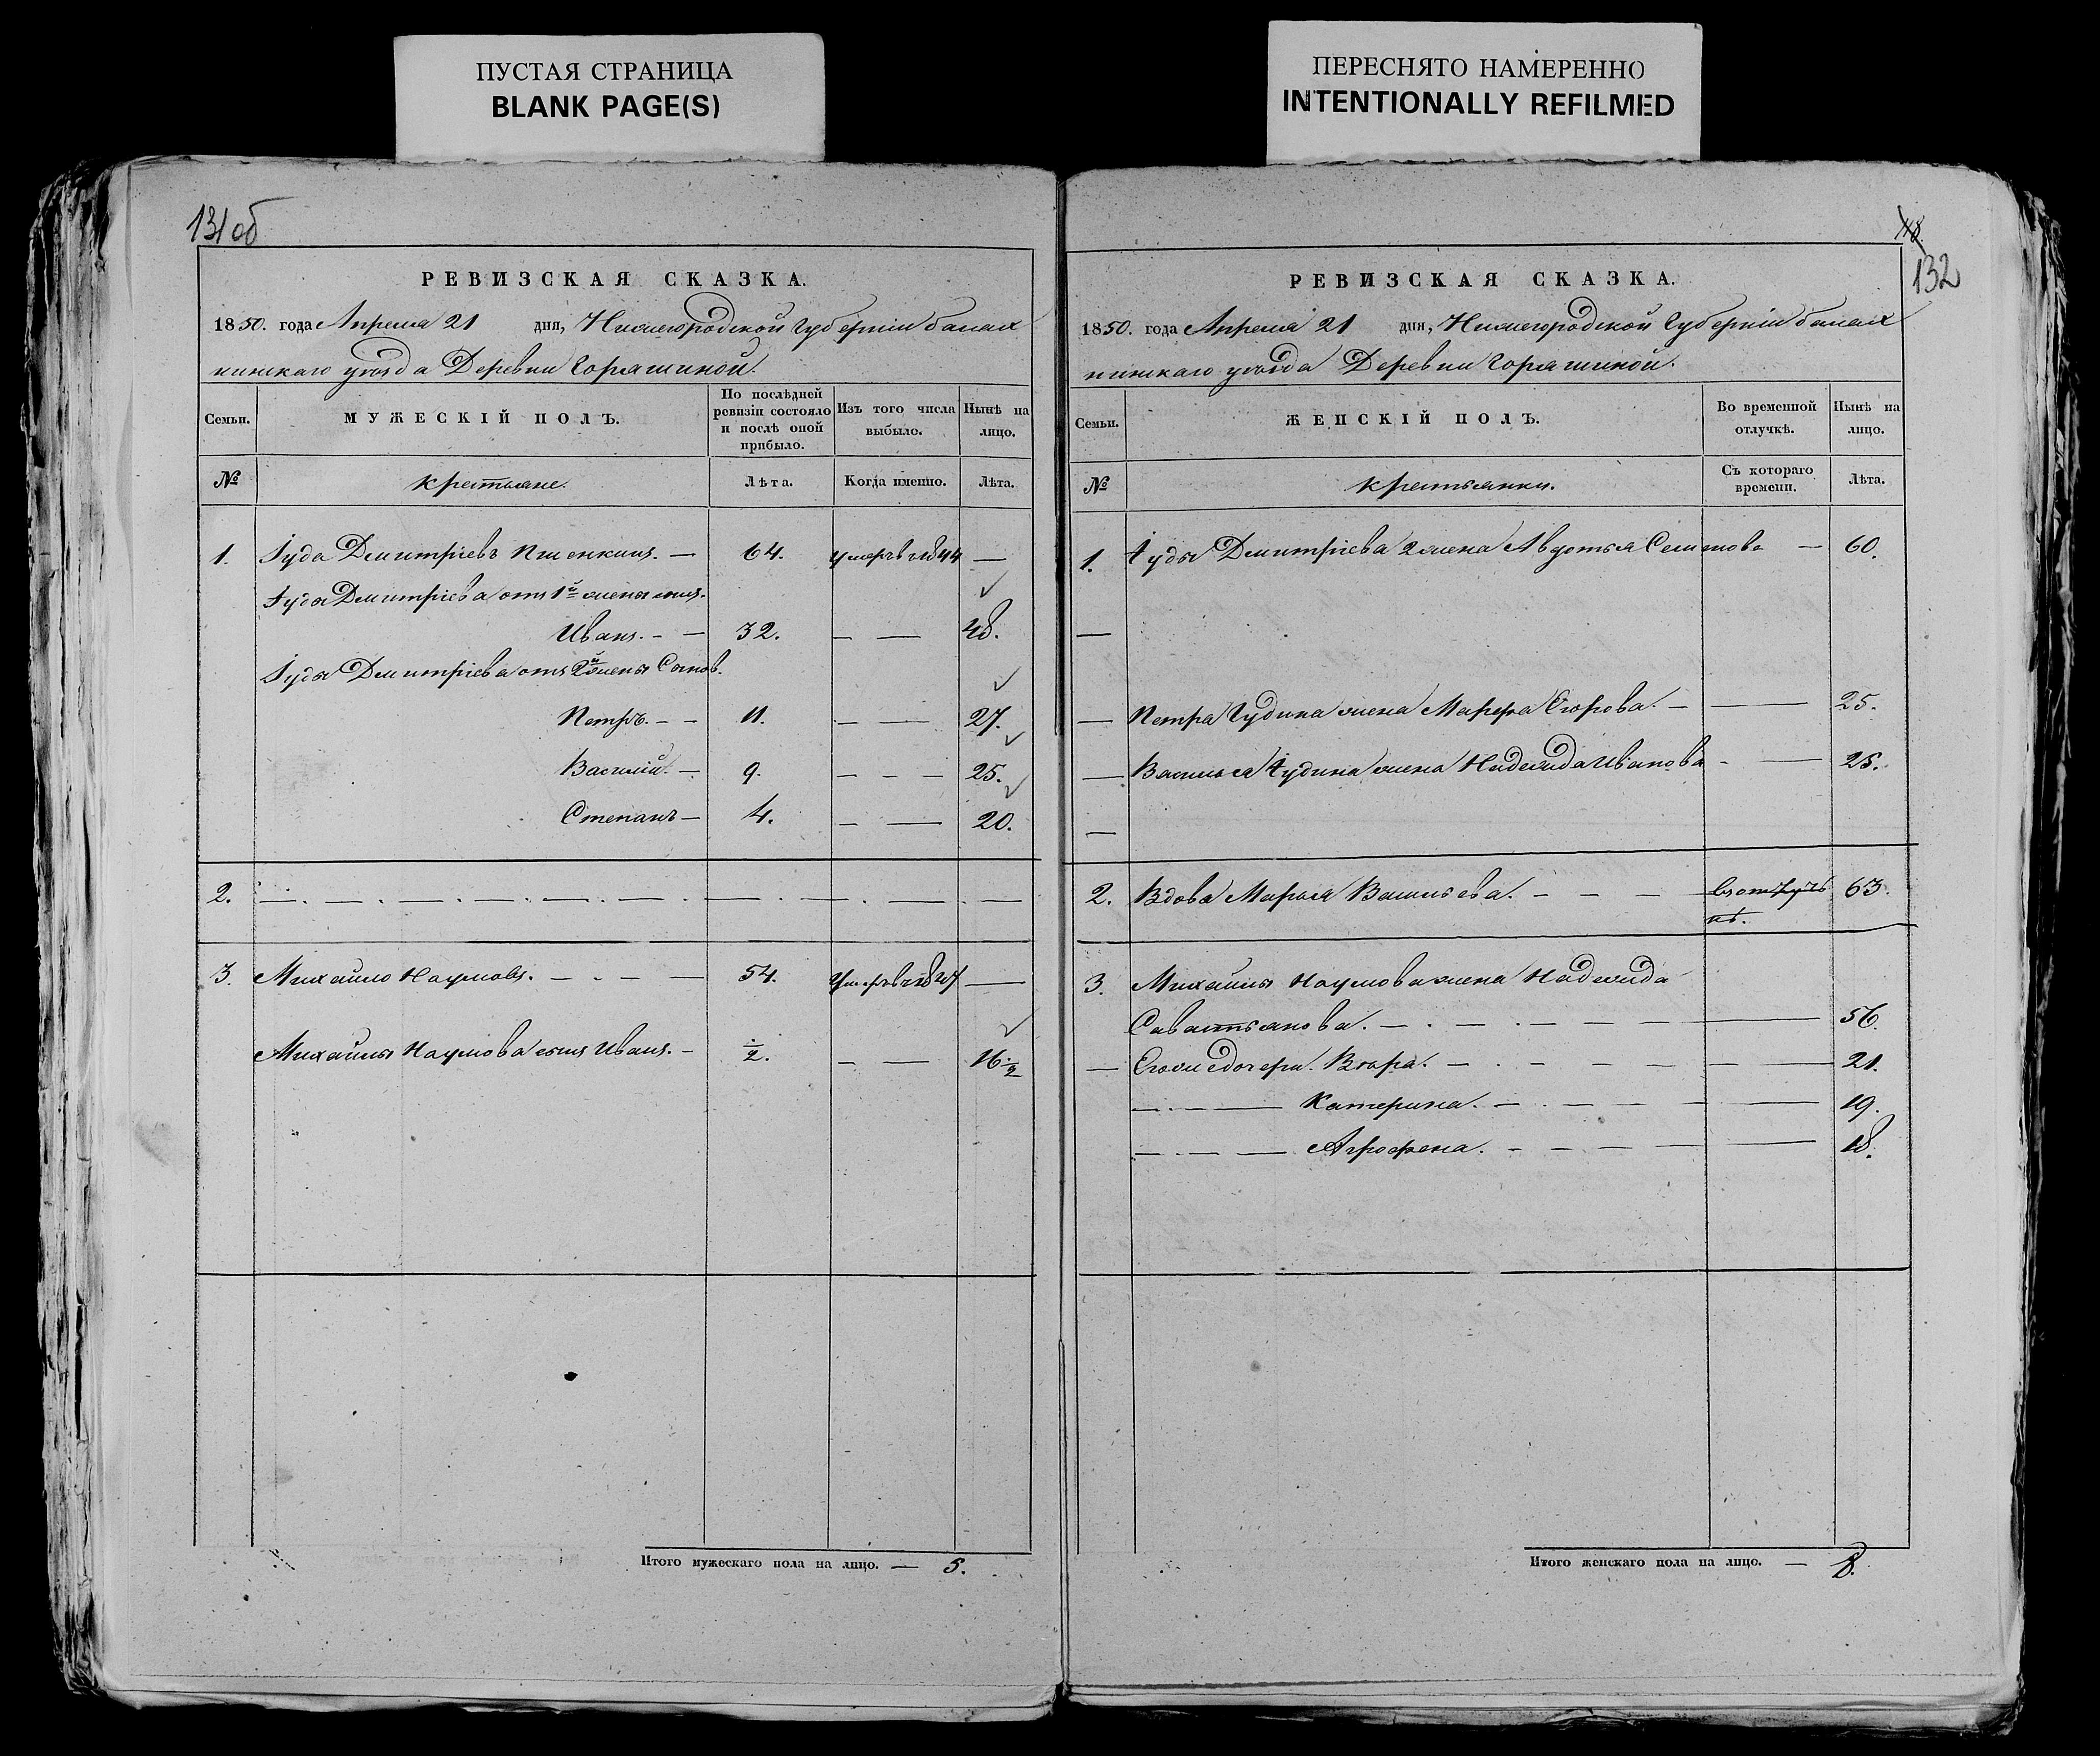 ПУСТАЯ СТРАНИЦА
BLANK PAGE(S)
ПЕРЕСНЯТО НАМЕРЕННО
INTENTIONALLY REFILMED
131об
РЕВИЗСКАЯ СКАЗКА.
1850. года Апреля 21 дня, Нижегородской Губерніи Балах
нинскаго уѣзда Деревни Горяшиной.
Семьи. МУЖЕСКІЙ ПОЛЪ. По послѣдней ревизіи состояло и послѣ оной прибыло. Изъ того числа выбыло. Нынѣ на лицо.
№ крестьяне. Лѣта. Когда именно. Лѣта.
1. Іуда Дмитріевъ Пшенкинъ. — 64. умеръ в 1844 —
Іуды Дмитріева отъ 1й жены сынъ.
Иванъ. — — 32. — — 48.
Іуды Дмитріева отъ 2й жены Сынов.
Петръ. — — 11. — — 27.
Василій. — 9. — — — 25.
Степанъ — 4. — — 20.
2. — . — . — . — . — . — . — . — . —
3. Михайло Наумовъ. — - - — 54. Умеръ в 1847 —
Михайлы Наумова сынъ Иванъ. — ½. — — 16½
118.
132
РЕВИЗСКАЯ СКАЗКА.
1850. года Апреля 21 дня, Нижегородской Губерніи Балах
нинскаго уѣзда Деревни Горяшиной.
Семьи. ЖЕНСКІЙ ПОЛЪ. Во временной отлучкѣ. Нынѣ на лицо.
№ крестьянки. Съ котораго времени. Лѣта.
1. Іуды Дмитріева 2 жена Авдотья Семенова — 60.
—
— Петра Іудина жена Марфа Егорова. — — 25.
— Василья Іудина жена Надежда Иванова - — 25.
—
2. Вдова Марья Васильева. - - — 63.
3. Михайлы Наумова жена Надежда
Савастьянова. — . — . — — — — 56.
— Его же дочери. Вѣра. — . - — — — 21.
— . — — Катерина. — . — — — — 19.
— . — — Агрофена. - - — — — 18.
Итого мужескаго пола на лицо. — 5.
Итого женскаго пола на лицо. — 8.